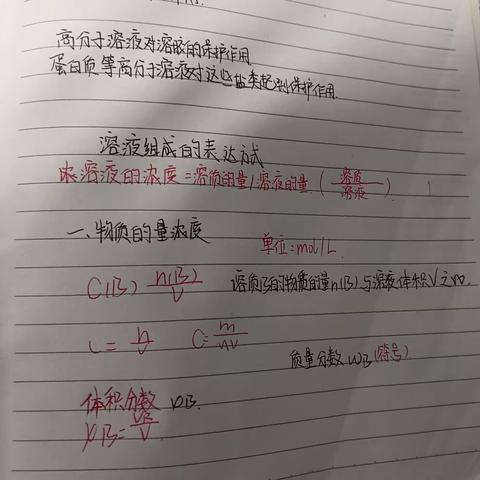 高分子溶液对溶胶的保护作用
蛋白质等高分子溶液对这些盐类起到保护作用.
溶液组成的表达方式
溶液的浓度=溶质的量/溶液的量 (溶质/溶液)
一、物质的量浓度
单位=mol/L
C(B) n(B)/V 溶质B的物质的量n(B)与溶液体积V之比.
C=n/V C=m/MV
质量分数 ωB(符号)
体积分数 φB.
φB=VB/V